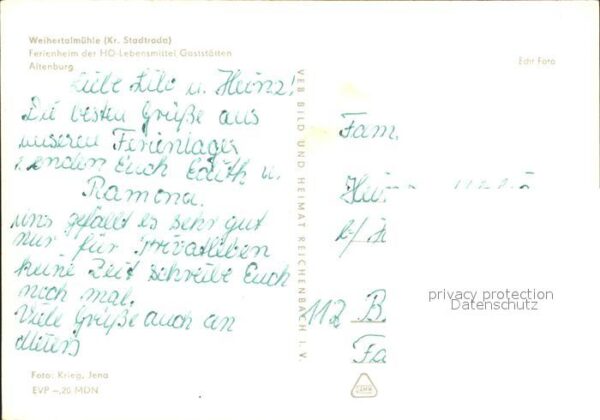 Weihertalmühle (Kr. Stadtroda)
Ferienheim der HO-Lebensmittel Gaststätten
Altenburg
Echt Foto
Liebe Lilo u. Heinz!
Die besten Grüße aus
unseren Ferienlager
senden Euch Edith u.
Ramona.
Uns gefällt es sehr gut
nur für Privatleben
keine Zeit schreibe Euch
noch mal.
Viele Grüße auch an
VEB BILD UND HEIMAT REICHENBACH I. V.
Fam.
112 B
Fa
privacy protection
Datenschutz
Foto: Krieg, Jena
EVP -,20 MDN